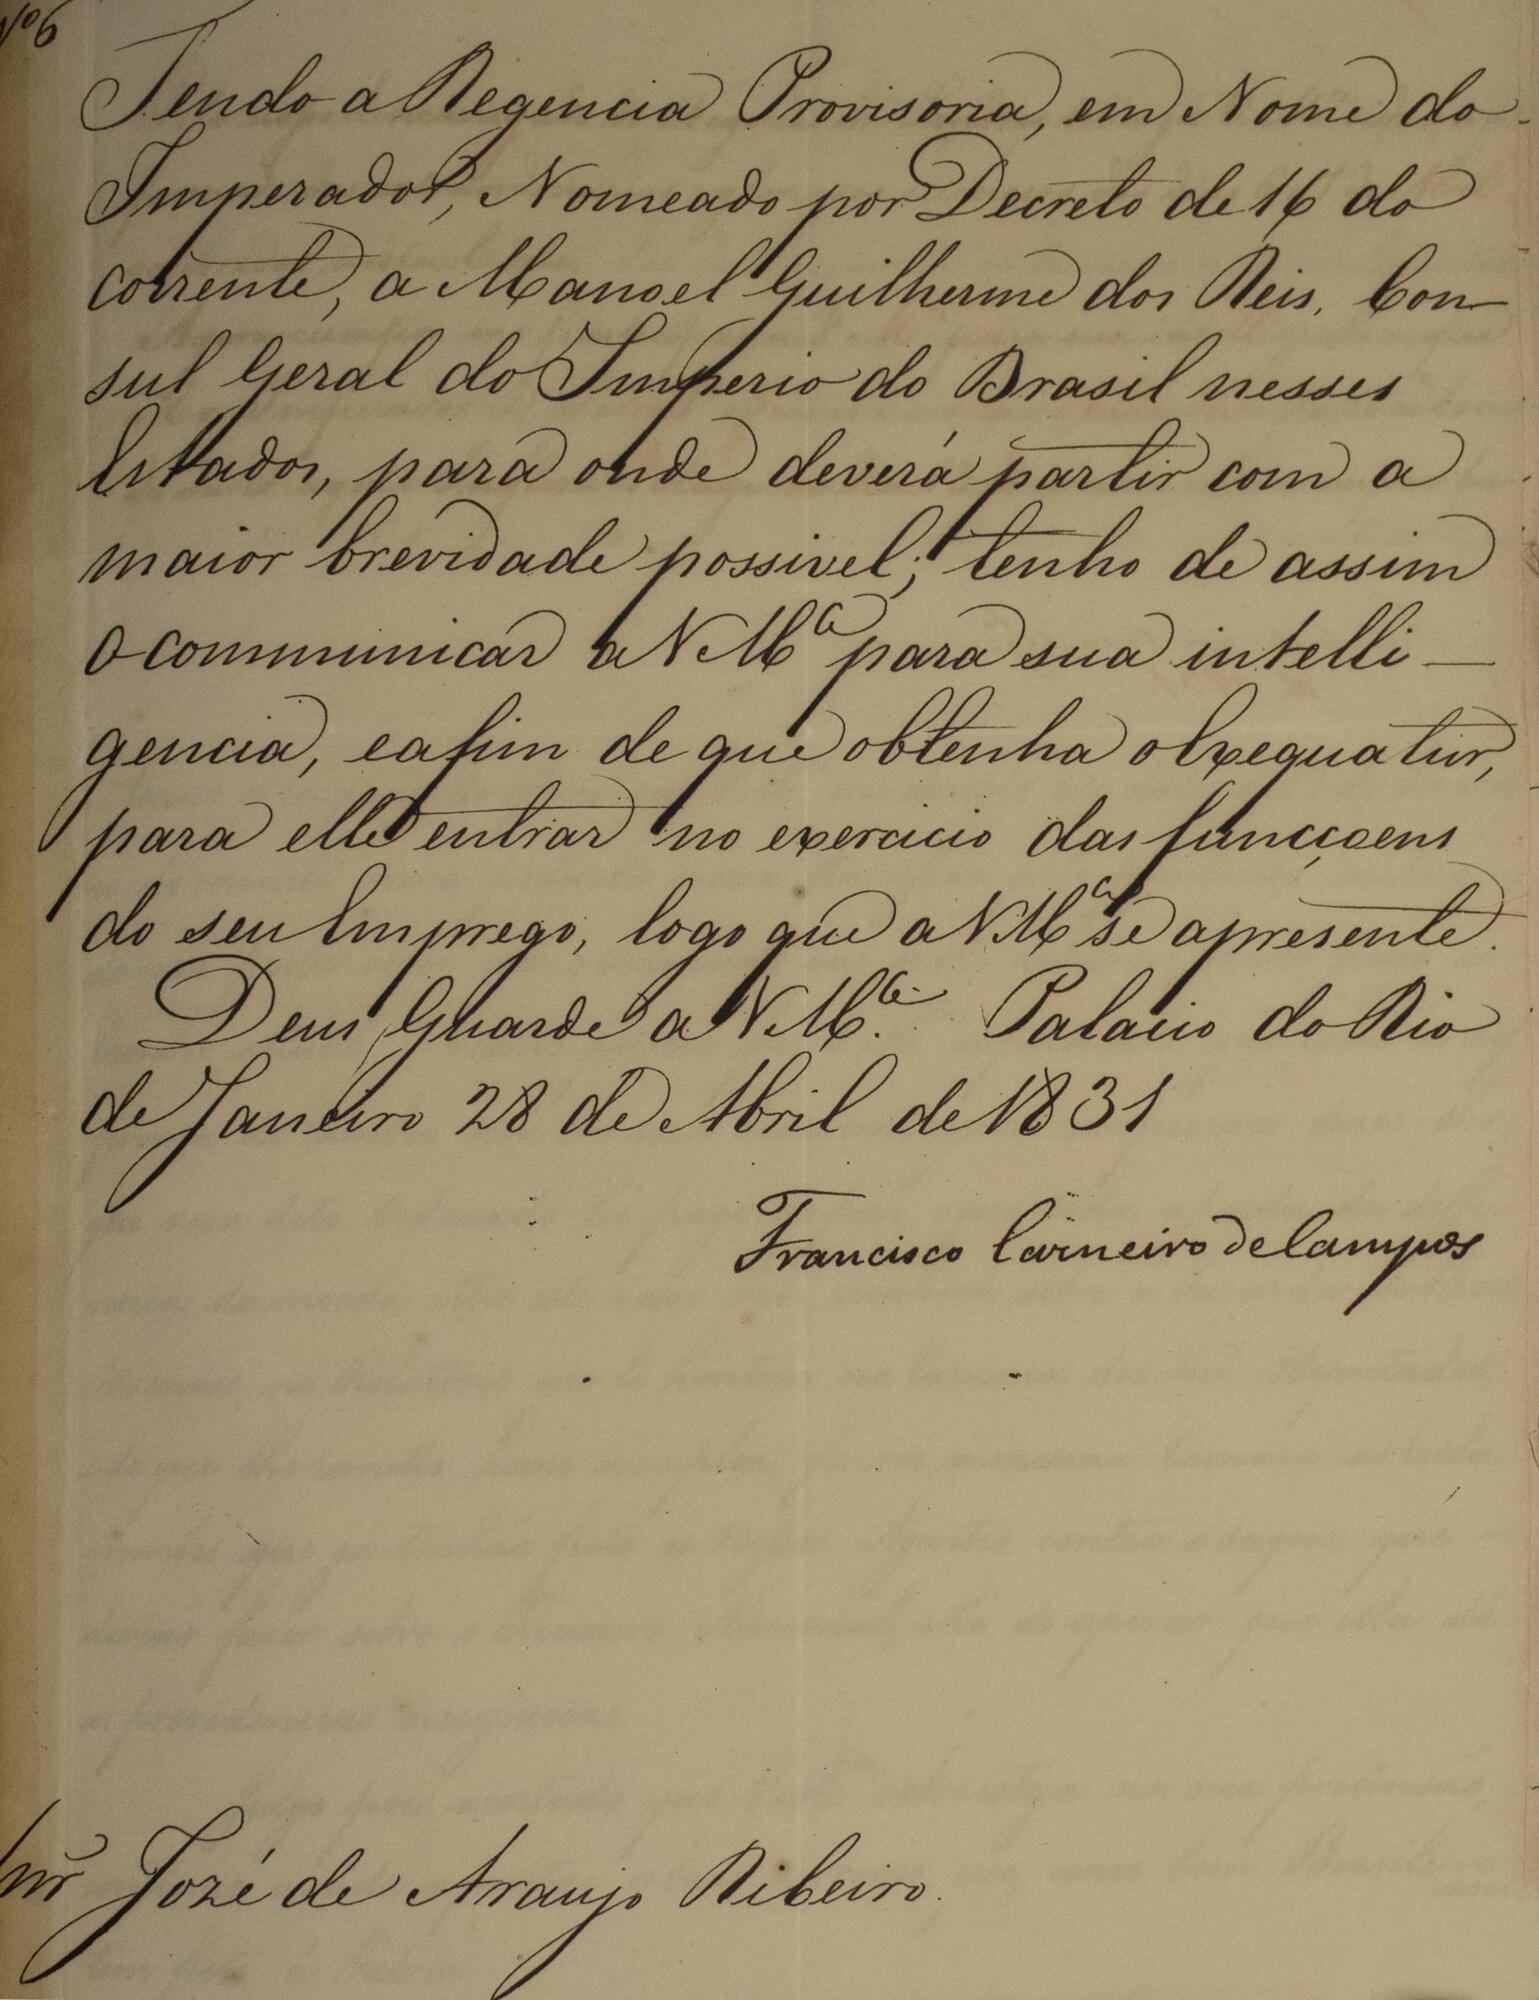 Nº 6
Tendo a Regencia Provisoria, em Nome do
Imperador, Nomeado por Decreto de 16 do
corrente, a Manoel Guilherme dos Reis, Con-
sul Geral do Imperio do Brasil nesses
Estados, para onde deverá partir com a
maior brevidade possivel; tenho de assim
o communicar a V Mce para sua intelli-
gencia, e afim de que obtenha o Exequatur,
para elle entrar no exercicio das funcçoens
do seu Emprego, logo que a V Mce se apresente.
Deus Guarde a V Mce. Palacio do Rio
de Janeiro 28 de Abril de 1831
Francisco Carneiro de Campos
Snr José de Araujo Ribeiro.